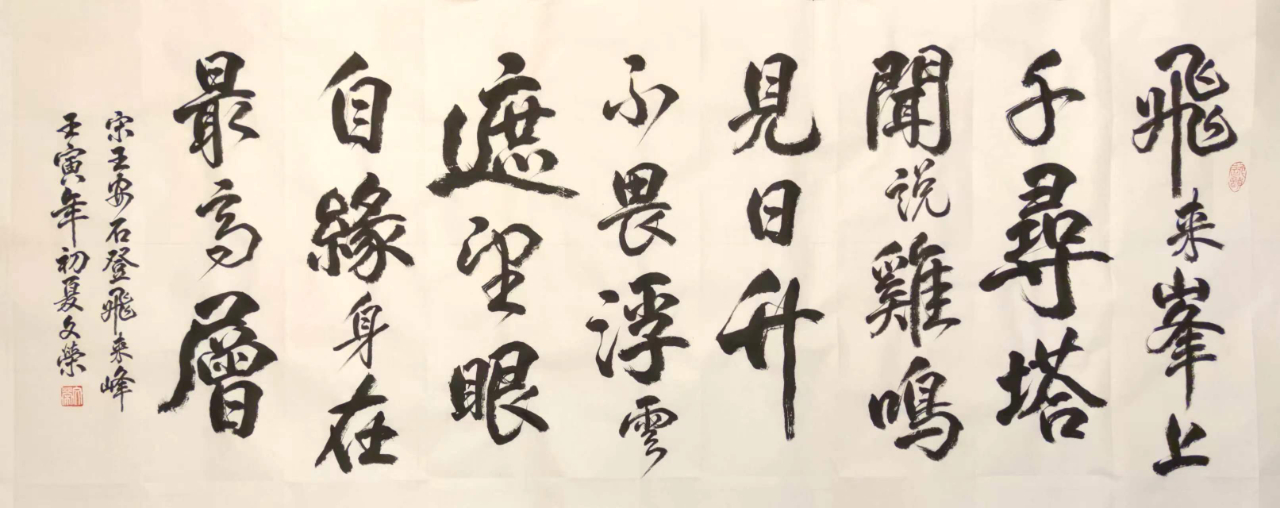 飛来峯上
千尋塔
聞说雞鳴
見日升
不畏浮雲
遮望眼
自緣身在
最高層
宋王安石登飛来峰
壬寅年初夏文榮